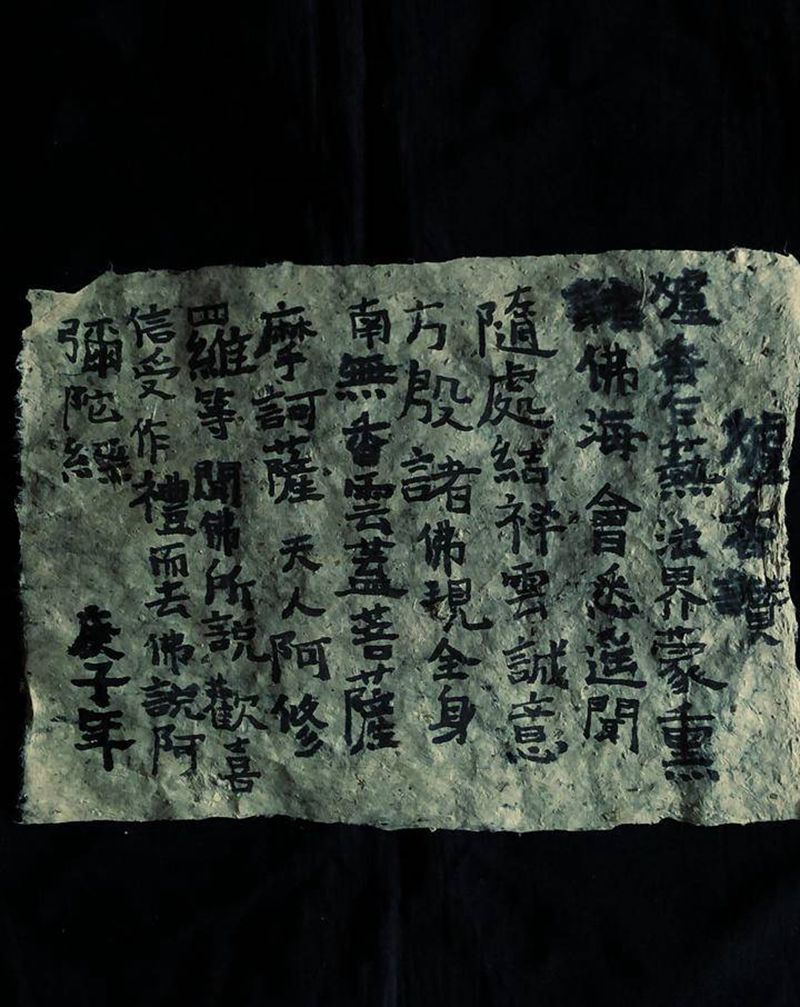 爐香讚
爐香乍爇法界蒙熏
諸佛海會悉遥聞
隨處結祥雲誠意
方殷諸佛現全身
南無香雲蓋菩薩
摩訶薩天人阿修
四維等聞佛所説歡喜
信受作禮而去佛説阿
彌陀經
庚子年